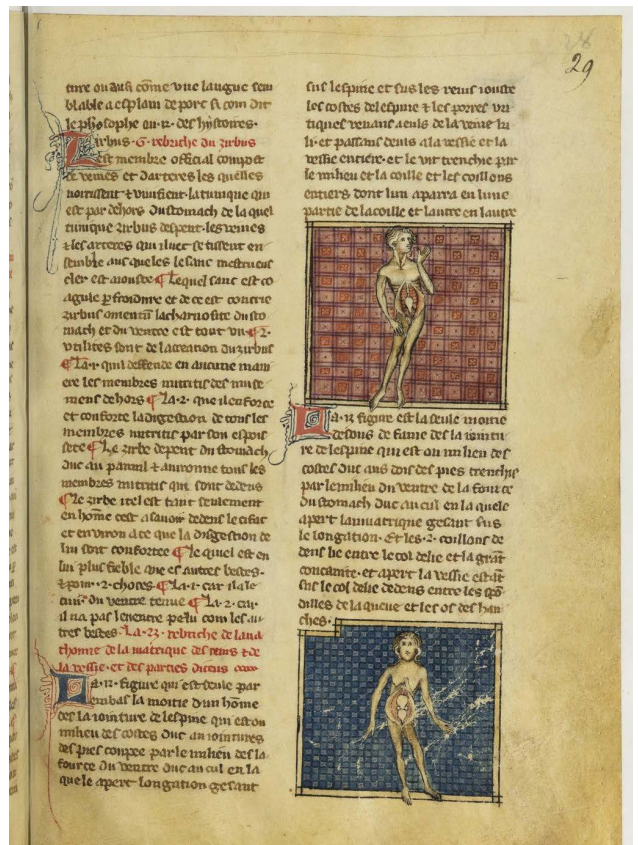 29
ture ou aussi come une langue sem
blable a esplain de porc si com dit
le phylosophe ou .12. des hystoires.
Zirbus .6. rebriche du zirbus
est membre official compost
de veines et darteres les quelles
norrissent ⁊ vivifient la tunique qui
est par dehors du stomach de la quel
tunique zirbus despent les veines
⁊ les arteres qui iluec se tissent en
semble aus queles le sanc mestrueus
cler est aiouste ¶ Lequel sanc est co
agule p froidure et de ce est contrie
zirbus omentu la charnosite du sto
mach et du ventre est tout un ¶ .2.
utilites sont de la creation du zirbus
¶ La .1. quil deffende en aucune mani
ere les membres nutritis des nuise
mens dehors ¶ La .2. que il enforce
et conforte la digestion de tous les
membres nutritis par son espois
sete ¶ Le zirbe depent du stomach
duc au penul ⁊ avironne tous les
membres nutritis qui sont dedens
¶ Le zirbe itel est tant seulement
en home cest a savoir dedens le cifac
et environ a ce que la digestion de
lui soit confortee ¶ le quel est en
lui plus fieble que es autres bestes
⁊ pour .2. choses ¶ La .1. car il a le
cuir du ventre tenue ¶ La .2. car
il na pas le ventre pelu com les au
tres bestes. La .23. rebriche de lana
thomie de la matrique des reins ⁊ de
la vessie. et des parties diceus
La .12. figure qui est seule par
embas la moitie dun home
des la iointure de lespine qui est ou
milieu des costes duc au iointures
des pies coupee par le milieu des la
fource du ventre duc au cul en la
quele apert longation gesant
sus lespine et sus les reins iouste
les costes de lespine ⁊ les pores uri
tiques venans a euls de la veine ki
li. et passans denis a la vessie et la
vessie entiere. et le vit trenchie par
le milieu et la coille et les coillons
entiers dont lun aparra en lune
partie de la coille et lautre en lautre
La .13. figure est la seule moitie
desous de fame des la iointu
re de lespine qui est ou milieu des
costes duc aus dois des pies trenchie
par le milieu du ventre de la fource
du stomach duc au cul en la quele
apert la matrique gesant sus
le longation. Et les .2. coillons de
dens lie entre le col delie et la grant
concavite. et apert la vessie estant
sus le col delie dedens entre les spon
dilles de la queue et les os des han
ches.